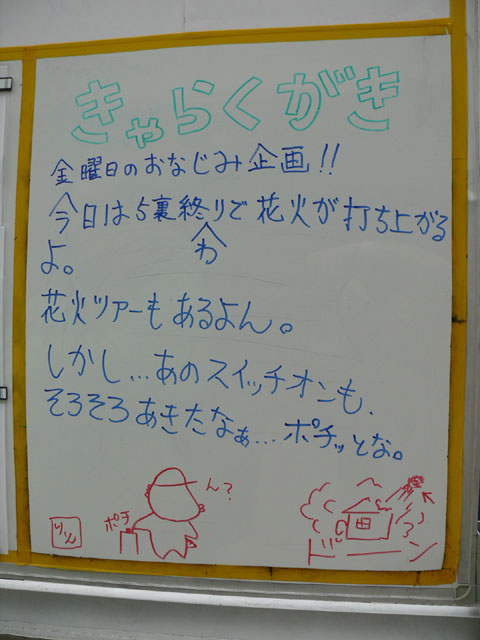 きゃらくがき
金曜日のおなじみ企画!!
今日は5裏終りで花火が打ち上がる
わ
よ。
花火ツアーもあるよん。
しかし…あのスイッチオンも、
そろそろあきたなぁ…ポチッとな。
ん?
ポチ
リん
ドーン